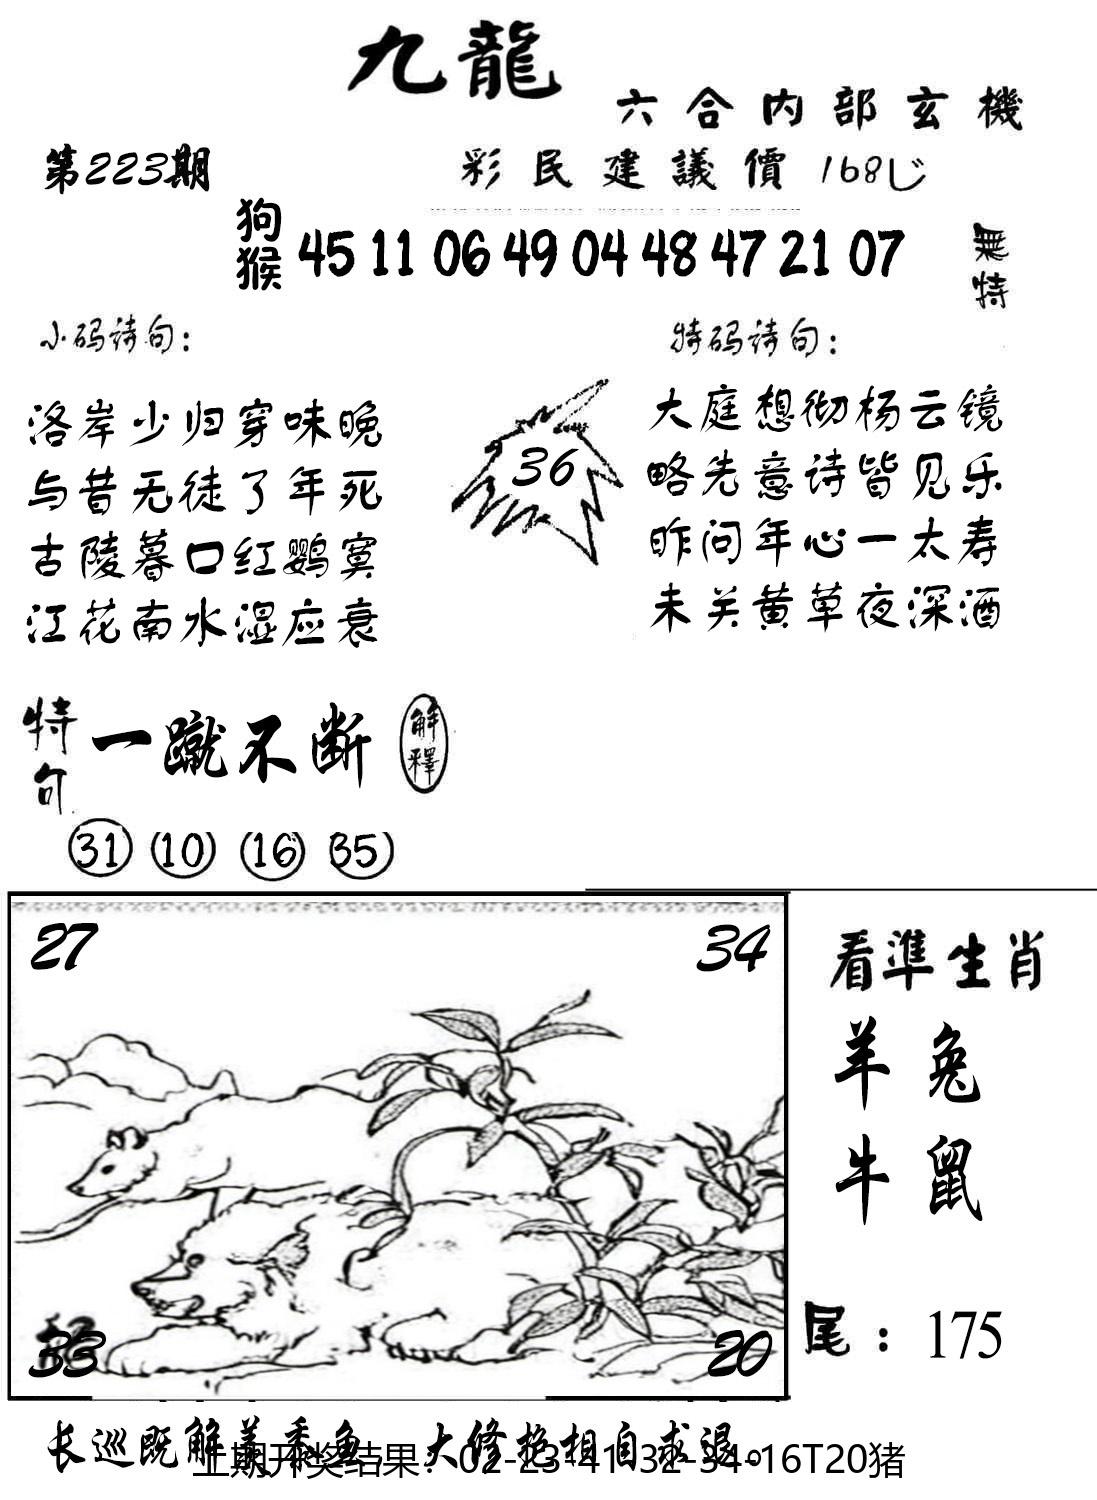 九龍
六合内部玄機
第223期
彩民建議價168
狗猴 45 11 06 49 04 48 47 21 07
無特
小码诗句：
特码诗句：
洛岸少归穿味晚
与昔无徒了年死
古陵暮口红鹦寞
江花南水湿应衰
36
大庭想彻杨云镜
略先意诗皆见乐
昨问年心一太寿
未关黄草夜深酒
特句 一蹴不断 解釋
31 10 16 35
27 34
看準生肖
羊 兔
牛 鼠
33 20
尾：175
长巡既解美黍鱼 大修抱相自求退。
上期开奖结果：02-23-41-32-34-16T20猪